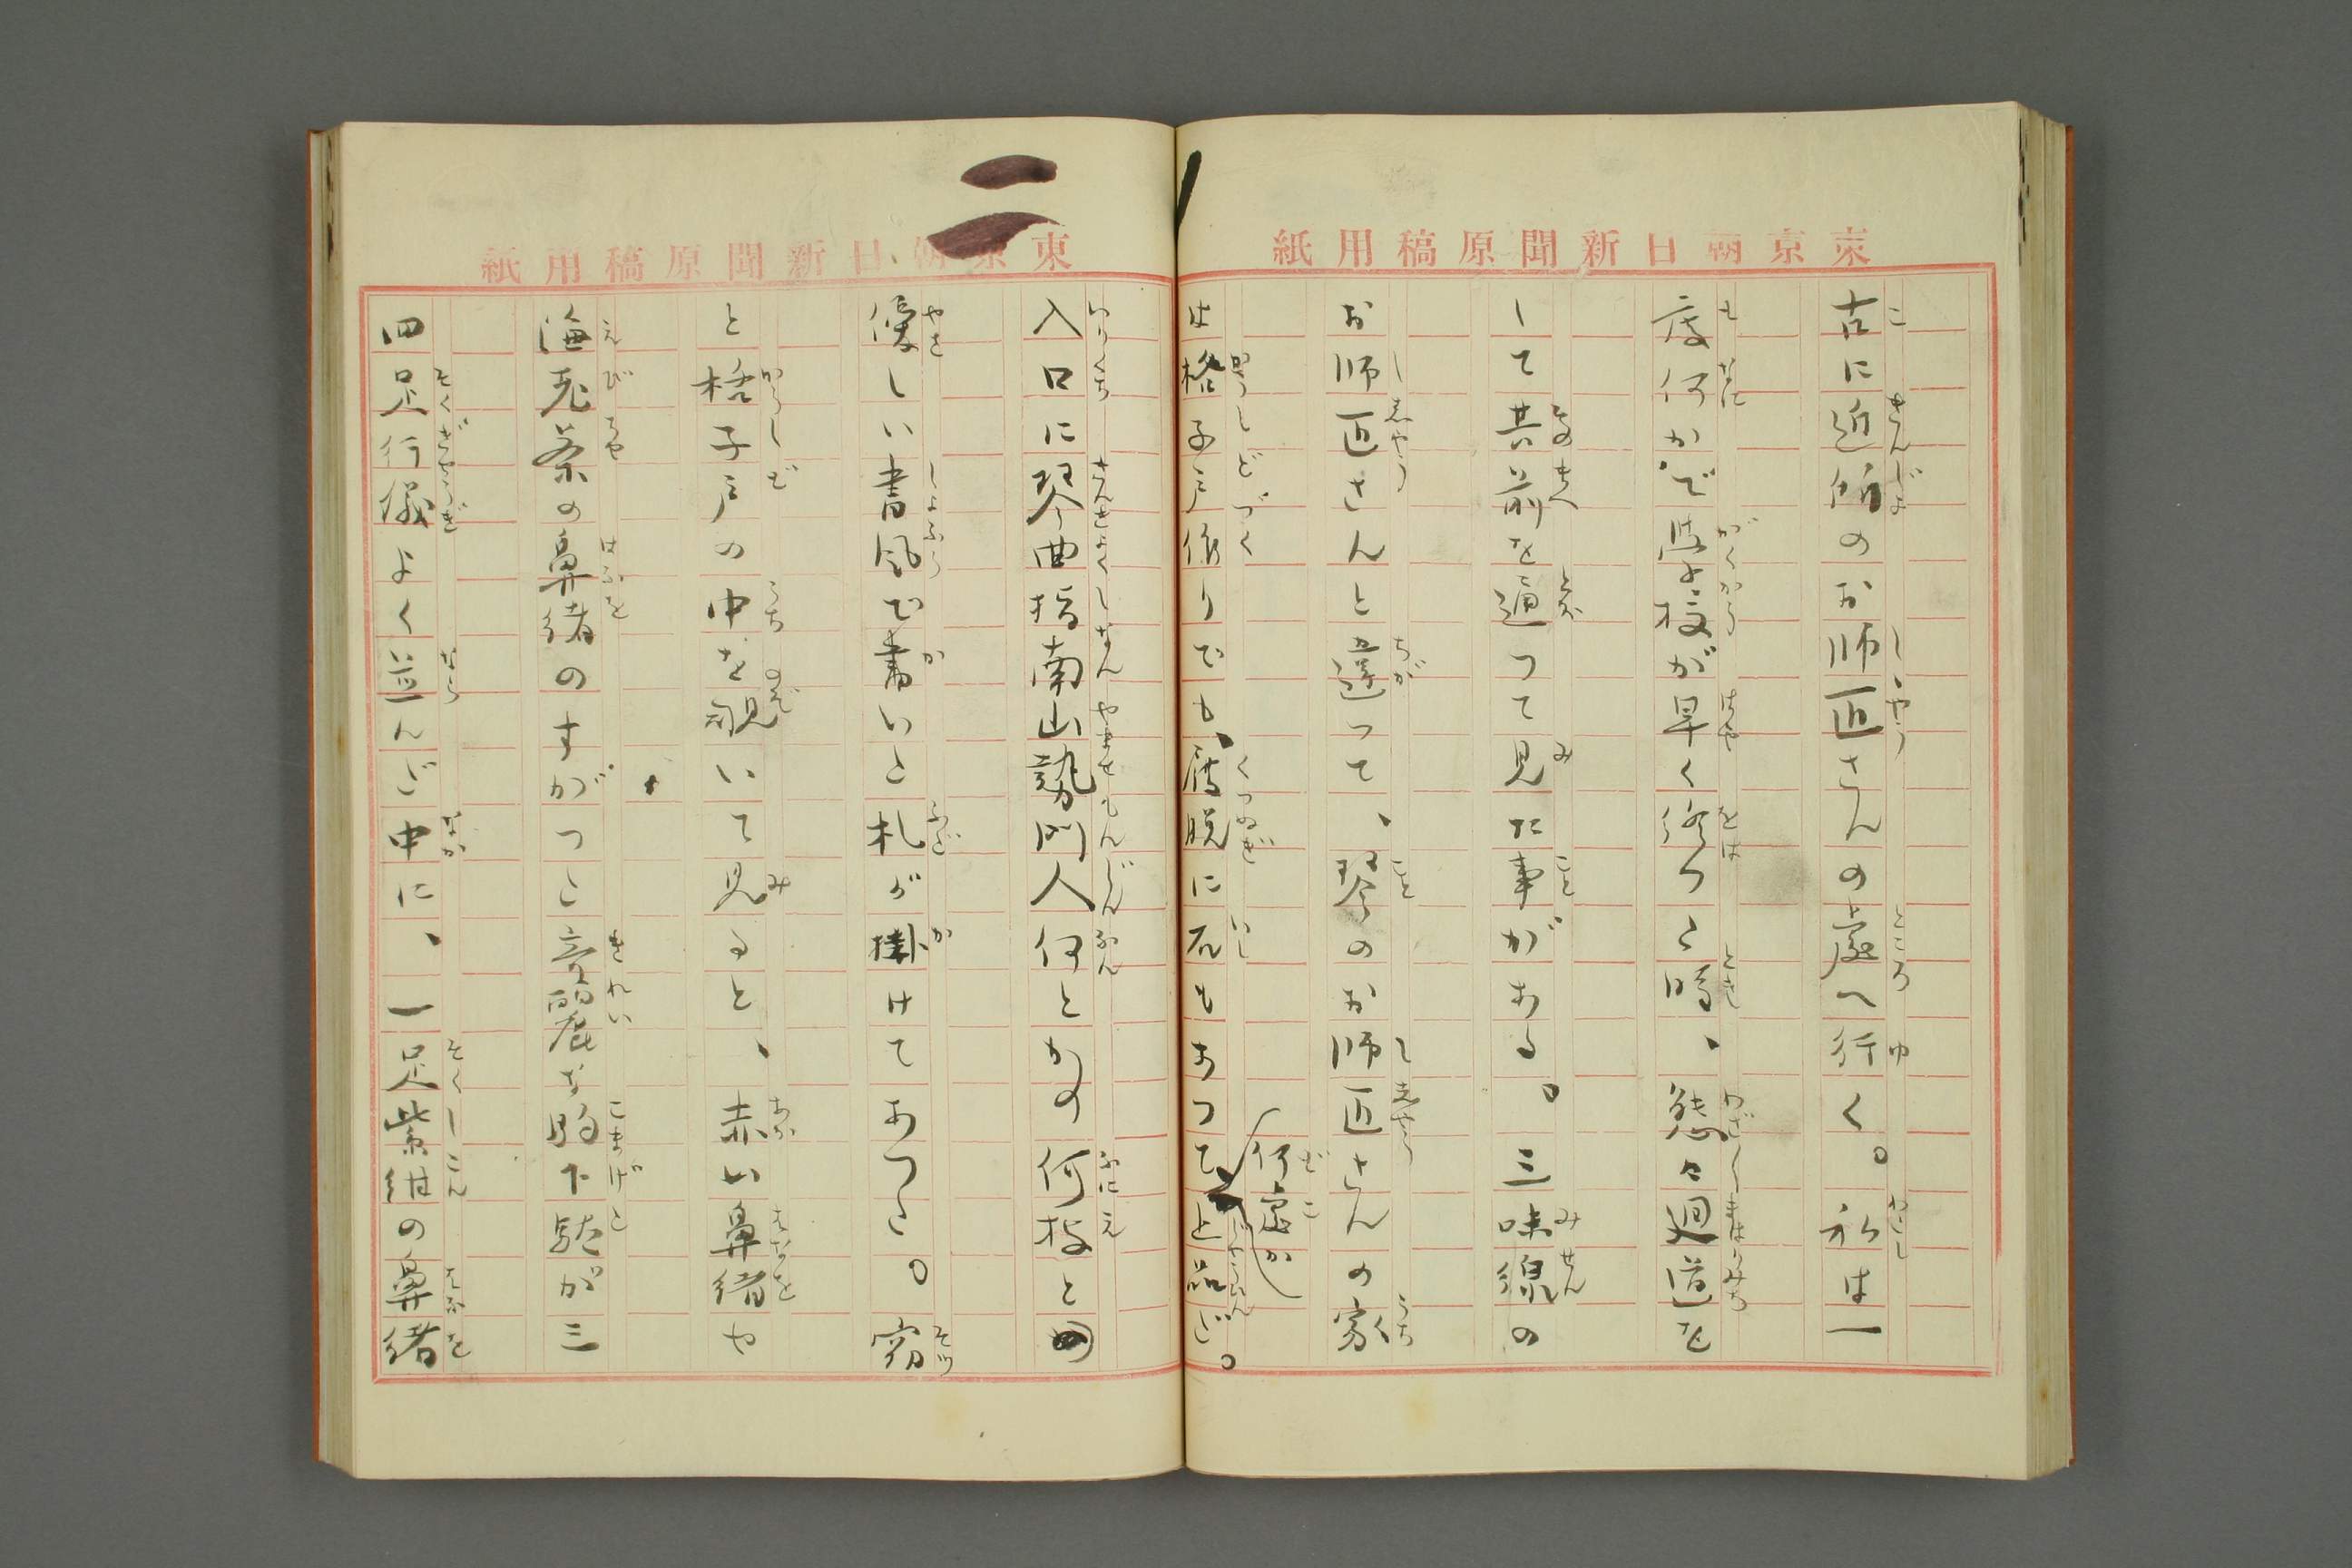 東京朝日新聞原稿用紙
古に近所のお師匠さんの處へ行く。私は一
度何かで学校が早く終つた時、態々廻道を
して其前を通つて見た事がある。三味線の
お師匠さんと違つて、琴のお師匠さんの家
は格子戸作りでも、履脱に石もあつて、何處か上品だ。
東京朝日新聞原稿用紙
二
入口に琴曲指南山勢門人何とかの何枝と
優しい書風で書いた札が掛けてあつた。窃
と格子戸の中を覗いて見ると、赤い鼻緒や
海老茶の鼻緒のすがつた綺麗な駒下駄が三
四足行儀よく並んだ中に、一足紫紺の鼻緒